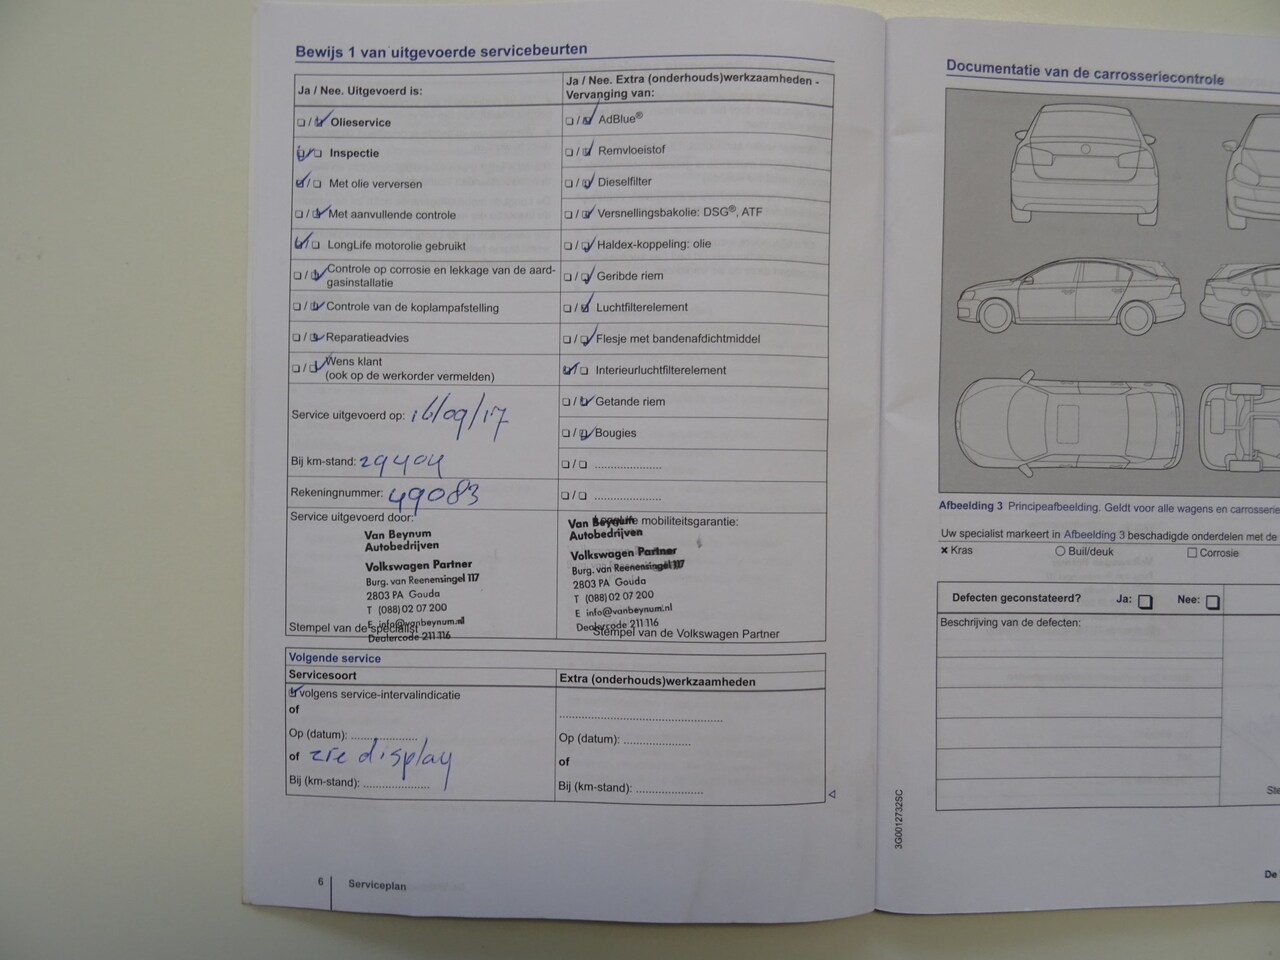 Bewijs 1 van uitgevoerde servicebeurten
Ja / Nee. Uitgevoerd is:
Olieservice
Inspectie
Met olie verversen
Met aanvullende controle
LongLife motorolie gebruikt
Controle op corrosie en lekkage van de aard-
gasinstallatie
Controle van de koplampafstelling
Reparatieadvies
Wens klant
(ook op de werkorder vermelden)
Service uitgevoerd op: 16/09/17
Bij km-stand: 29404
Rekeningnummer: 49083
Service uitgevoerd door:
Van Beynum
Autobedrijven
Volkswagen Partner
Burg. van Reenensingel 117
2803 PA Gouda
T (088) 02 07 200
E info@vanbeynum.nl
Dealercode 211 116
Stempel van de specialist
Ja / Nee. Extra (onderhouds)werkzaamheden -
Vervanging van:
AdBlue®
Remvloeistof
Dieselfilter
Versnellingsbakolie: DSG®, ATF
Haldex-koppeling: olie
Geribde riem
Luchtfilterelement
Flesje met bandenafdichtmiddel
Interieurluchtfilterelement
Getande riem
Bougies
.....................
.....................
mobiliteitsgarantie:
Van Beynum
Autobedrijven
Volkswagen Partner
Burg. van Reenensingel 117
2803 PA Gouda
T (088) 02 07 200
E info@vanbeynum.nl
Dealercode 211 116
Stempel van de Volkswagen Partner
Volgende service
Servicesoort
volgens service-intervalindicatie
of
Op (datum): .....................
of zie display
Bij (km-stand): .....................
Extra (onderhouds)werkzaamheden
Op (datum): .....................
of
Bij (km-stand): .....................
6 Serviceplan
Documentatie van de carrosseriecontrole
Afbeelding 3 Principeafbeelding. Geldt voor alle wagens en carrosserie
Uw specialist markeert in Afbeelding 3 beschadigde onderdelen met de
Kras Buil/deuk Corrosie
Defecten geconstateerd? Ja: Nee:
Beschrijving van de defecten:
Ste
3G0012732SC
De